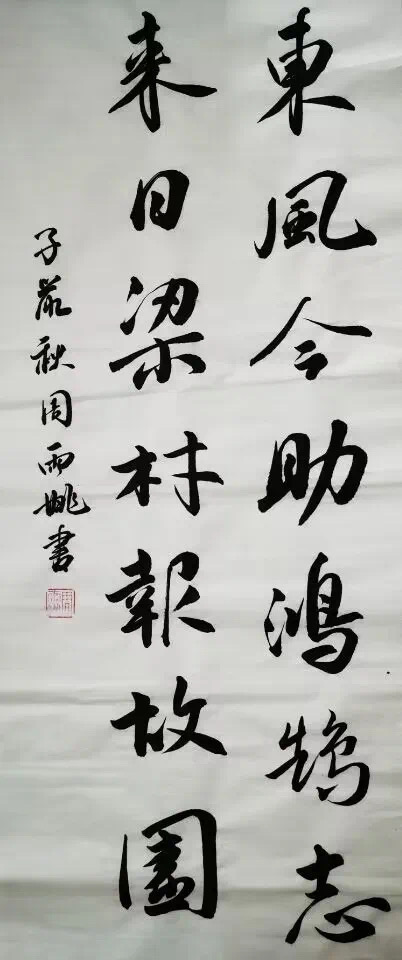 東風今助鴻鵠志
来日梁材報故園
子秋周雨姚書